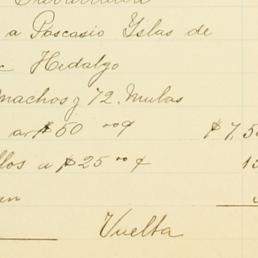 a Pascasio Yslas de
Hidalgo
machos y 72. Mulas
a $50 00¢ $7,50
llos a $25 00¢ 1
Vuelta